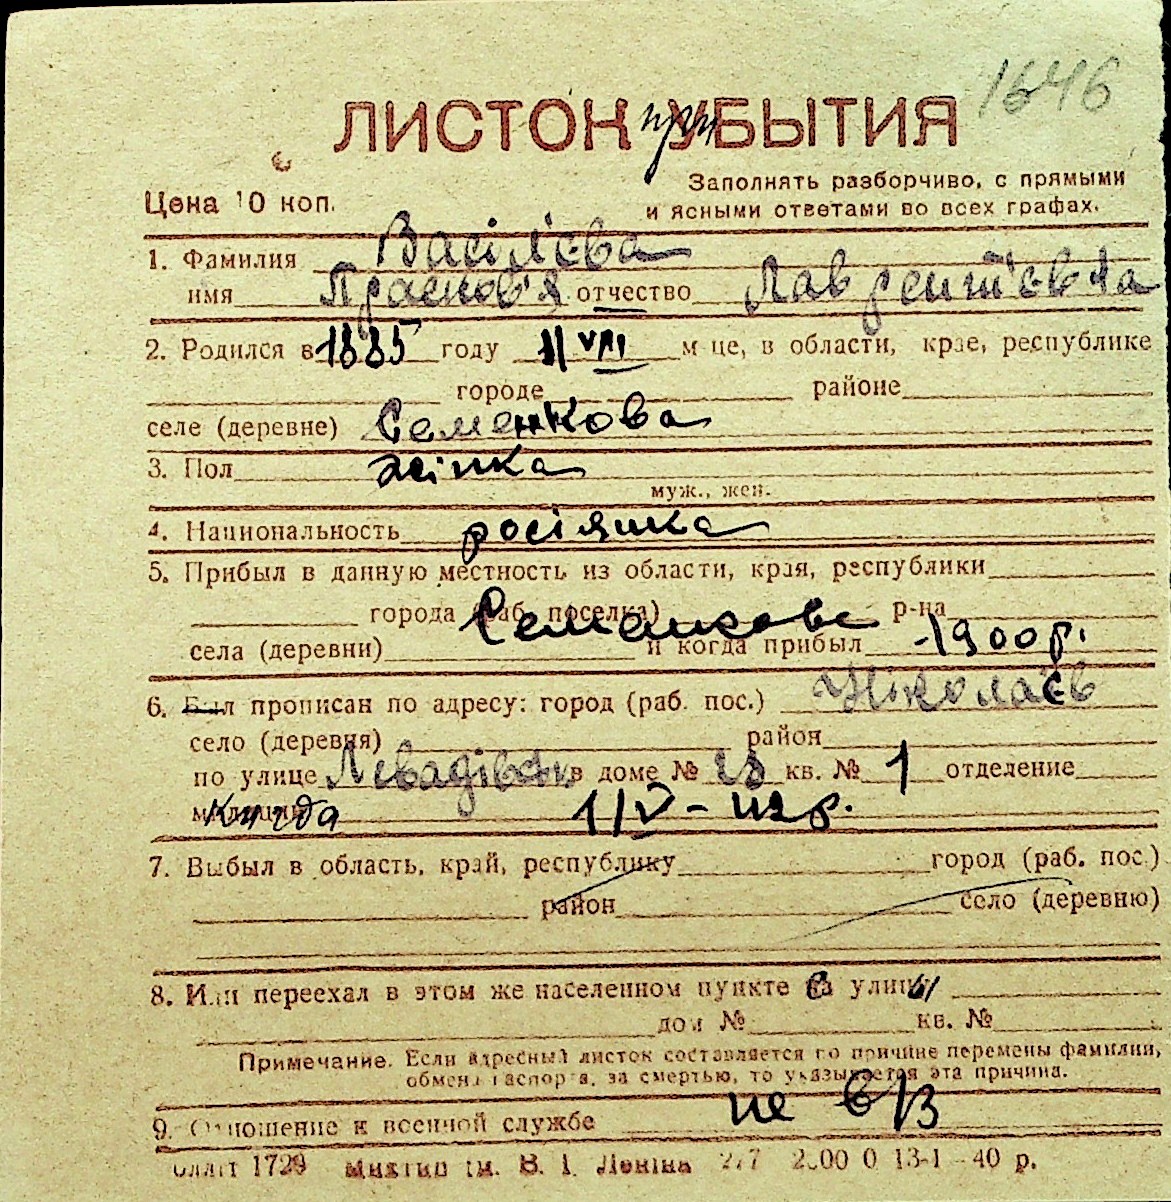 1646
ЛИСТОК при УБЫТИЯ
Цена 10 коп.
Заполнять разборчиво, с прямыми
и ясными ответами во всех графах.
1. Фамилия Васільєва
имя Прасков'я отчество Лаврентієвна
2. Родился в 1885 году 11 VIII м-це, в области, крае, республике
городе районе
селе (деревне) Семенкова
3. Пол жінка
муж., жен.
4. Национальность росіянка
5. Прибыл в данную местность из области, края, республики
города (раб. поселка) Семенкова р-на
села (деревни) и когда прибыл 1900 р.
6. Был прописан по адресу: город (раб. пос.) Ніколаєв
село (деревня) район
по улице в доме № кв. № 1 отделение
милиции
7. Выбыл в область, край, республику город (раб. пос.)
район село (деревню)
8. Или переехал в этом же населенном пункте улицы
дом № кв. №
Примечание. Если адресный листок составляется по причине перемены фамилии,
обмена паспорта, за смертью, то указывается эта причина.
9. Отношение к военной службе не в/з
1729 ім. В. І. Леніна 40 р.